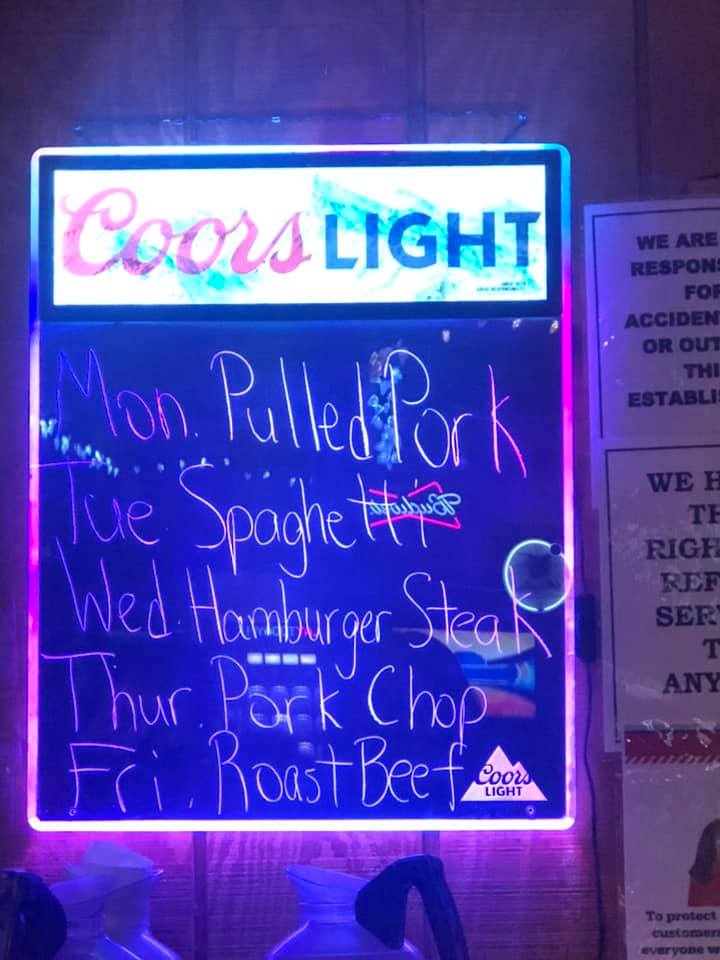 Coors LIGHT
Mon. Pulled Pork
Tue Spaghetti
Budweiser
Wed. Hamburger Steak
Thur. Pork Chop
Fri. Roast Beef
Coors
LIGHT
WE ARE
RESPONS
FOR
ACCIDEN
OR OUT
THI
ESTABLIS
WE H
TH
RIGH
REF
SER
T
ANY
To protect
customers
everyone w